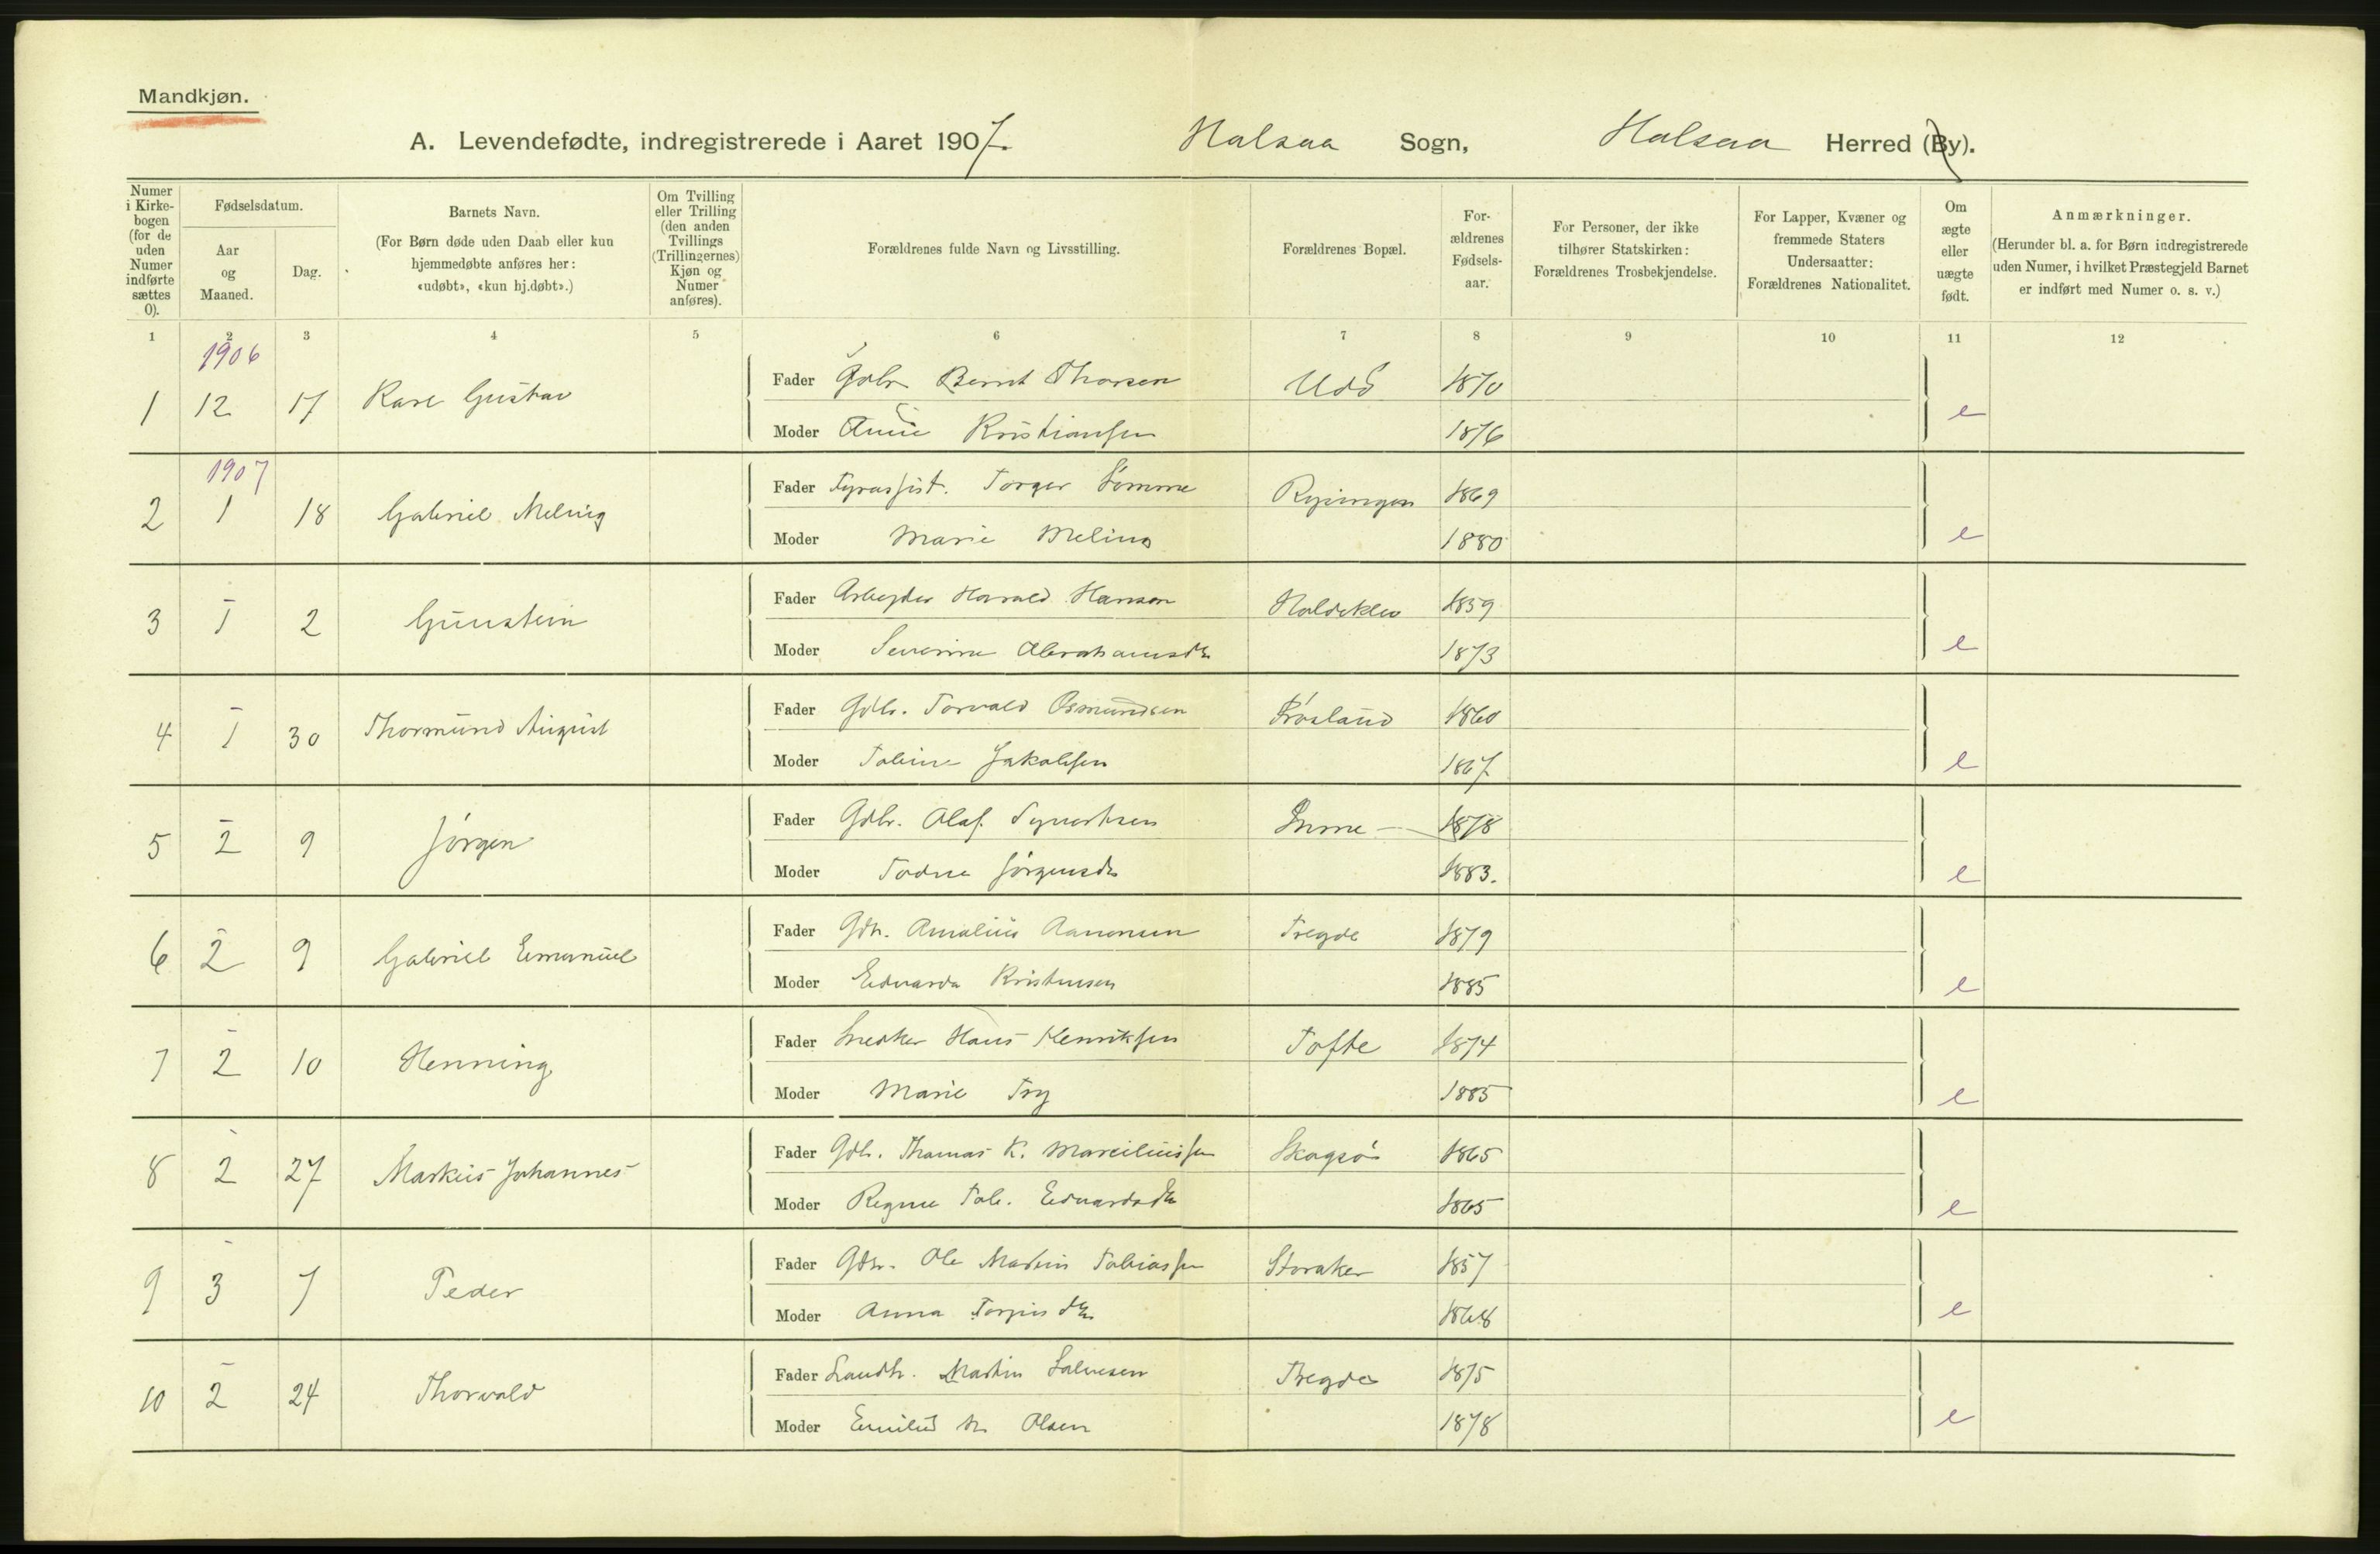 Mandkjøn.
A. Levendefødte, indregistrerede i Aaret 1907. Halsaa Sogn, Halsaa Herred (By).
Numer i Kirkebogen (for de uden Numer indførte sættes 0).
Fødselsdatum.
Aar og Maaned.
Dag.
Barnets Navn.
(For Børn døde uden Daab eller kun hjemmedøbte anføres her: «udøbt», «kun hj.døbt».)
Om Tvilling eller Trilling (den anden Tvillings (Trillingernes) Kjøn og Numer anføres).
Forældrenes fulde Navn og Livsstilling.
Forældrenes Bopæl.
Forældrenes Fødselsaar.
For Personer, der ikke tilhører Statskirken: Forældrenes Trosbekjendelse.
For Lapper, Kvæner og fremmede Staters Undersaatter: Forældrenes Nationalitet.
Om ægte eller uægte født.
Anmærkninger.
(Herunder bl. a. for Børn indregistrerede uden Numer, i hvilket Præstegjeld Barnet er indført med Numer o. s. v.)
1 2 3 4 5 6 7 8 9 10 11 12
1906
1 12 17 Kare Gustav Fader Gdbr. Bernt Thorsen Udö 1870
Moder Anne Kristiansen 1876 e
1907
2 1 18 Gabriel Meling Fader Fyrassist. Torger Sömme Ryvingen 1869
Moder Marie Meling 1880 e
3 1 2 Gunstein Fader Arbeyder Harald Hanson 1859
Moder Severine Abrahamsdtr 1873 e
4 1 30 Thormund August Fader Gdbr. Torvald Osmundsen 1860
Moder Tobine Jakobsen 1867 e
5 2 9 Jörgen Fader Gdbr. Olaf Syvertsen 1878
Moder Todne Jörgensdtr 1883. e
6 2 9 Gabriel Emanuel Fader Amalius Aanonsen Tregde 1879
Moder Edvarda Kristensen 1885 e
7 2 10 Henning Fader Snedker Hans Henriksen Tofte 1874
Moder Marie Try 1885 e
8 2 27 Markus Johannes Fader Gdb. Thomas K. Marciliussen Skogsö 1865
Moder Regine Tob. Edvardsdtr 1865 e
9 3 7 Peder Fader Gdbr. Ole Martin Tobiassen Storaker 1857
Moder Anna Torjusdtr 1868 e
10 2 24 Thorvald Fader Landh. Martin Salvesen Tregde 1875
Moder Emilie M. Olsen 1878 e